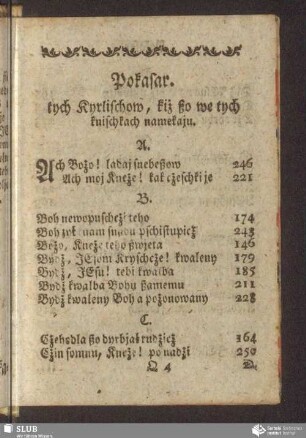 Pokasar.
tych Kyrlischow, kiž ßo we tych
knischkach namekaju.
A.
Ach Božo! ladaj snebeßow 246
Ach moj Kneže! kak cžeschki je 221
B.
Boh newopuschcž teho 174
Boh 243
Božo, Kneže teho ßwjeta 146
Bydž, JEzom Kryscheže! kwaleny 179
Bydž, JEsu! tebi kwalba 185
Bydž kwalba Bohu ßamemu 211
Bydž kwaleny Boh a požonowany 228
C.
Cžehodla ßo dyrbjał rudžicž 364
Cžin somnu, Kneže! po nadži 250
Q 4 D.
SLUB